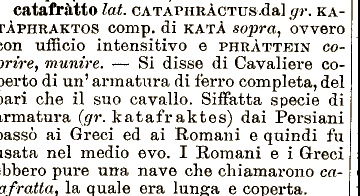 catafràtto lat. CATAPHRÀCTUS.dal gr. KA-
TÀPHRAKTOS comp. di KATÀ sopra, ovvero
con ufficio intensitivo e PHRÀTTEIN co-
prire, munire. — Si disse di Cavaliere co-
perto di un'armatura di ferro completa, del
pari che il suo cavallo. Siffatta specie di
armatura (gr. katafraktes) dai Persiani
passò ai Greci ed ai Romani e quindi fu
usata nel medio evo. I Romani e i Greci
ebbero pure una nave che chiamarono ca-
tafratta, la quale era lunga e coperta.